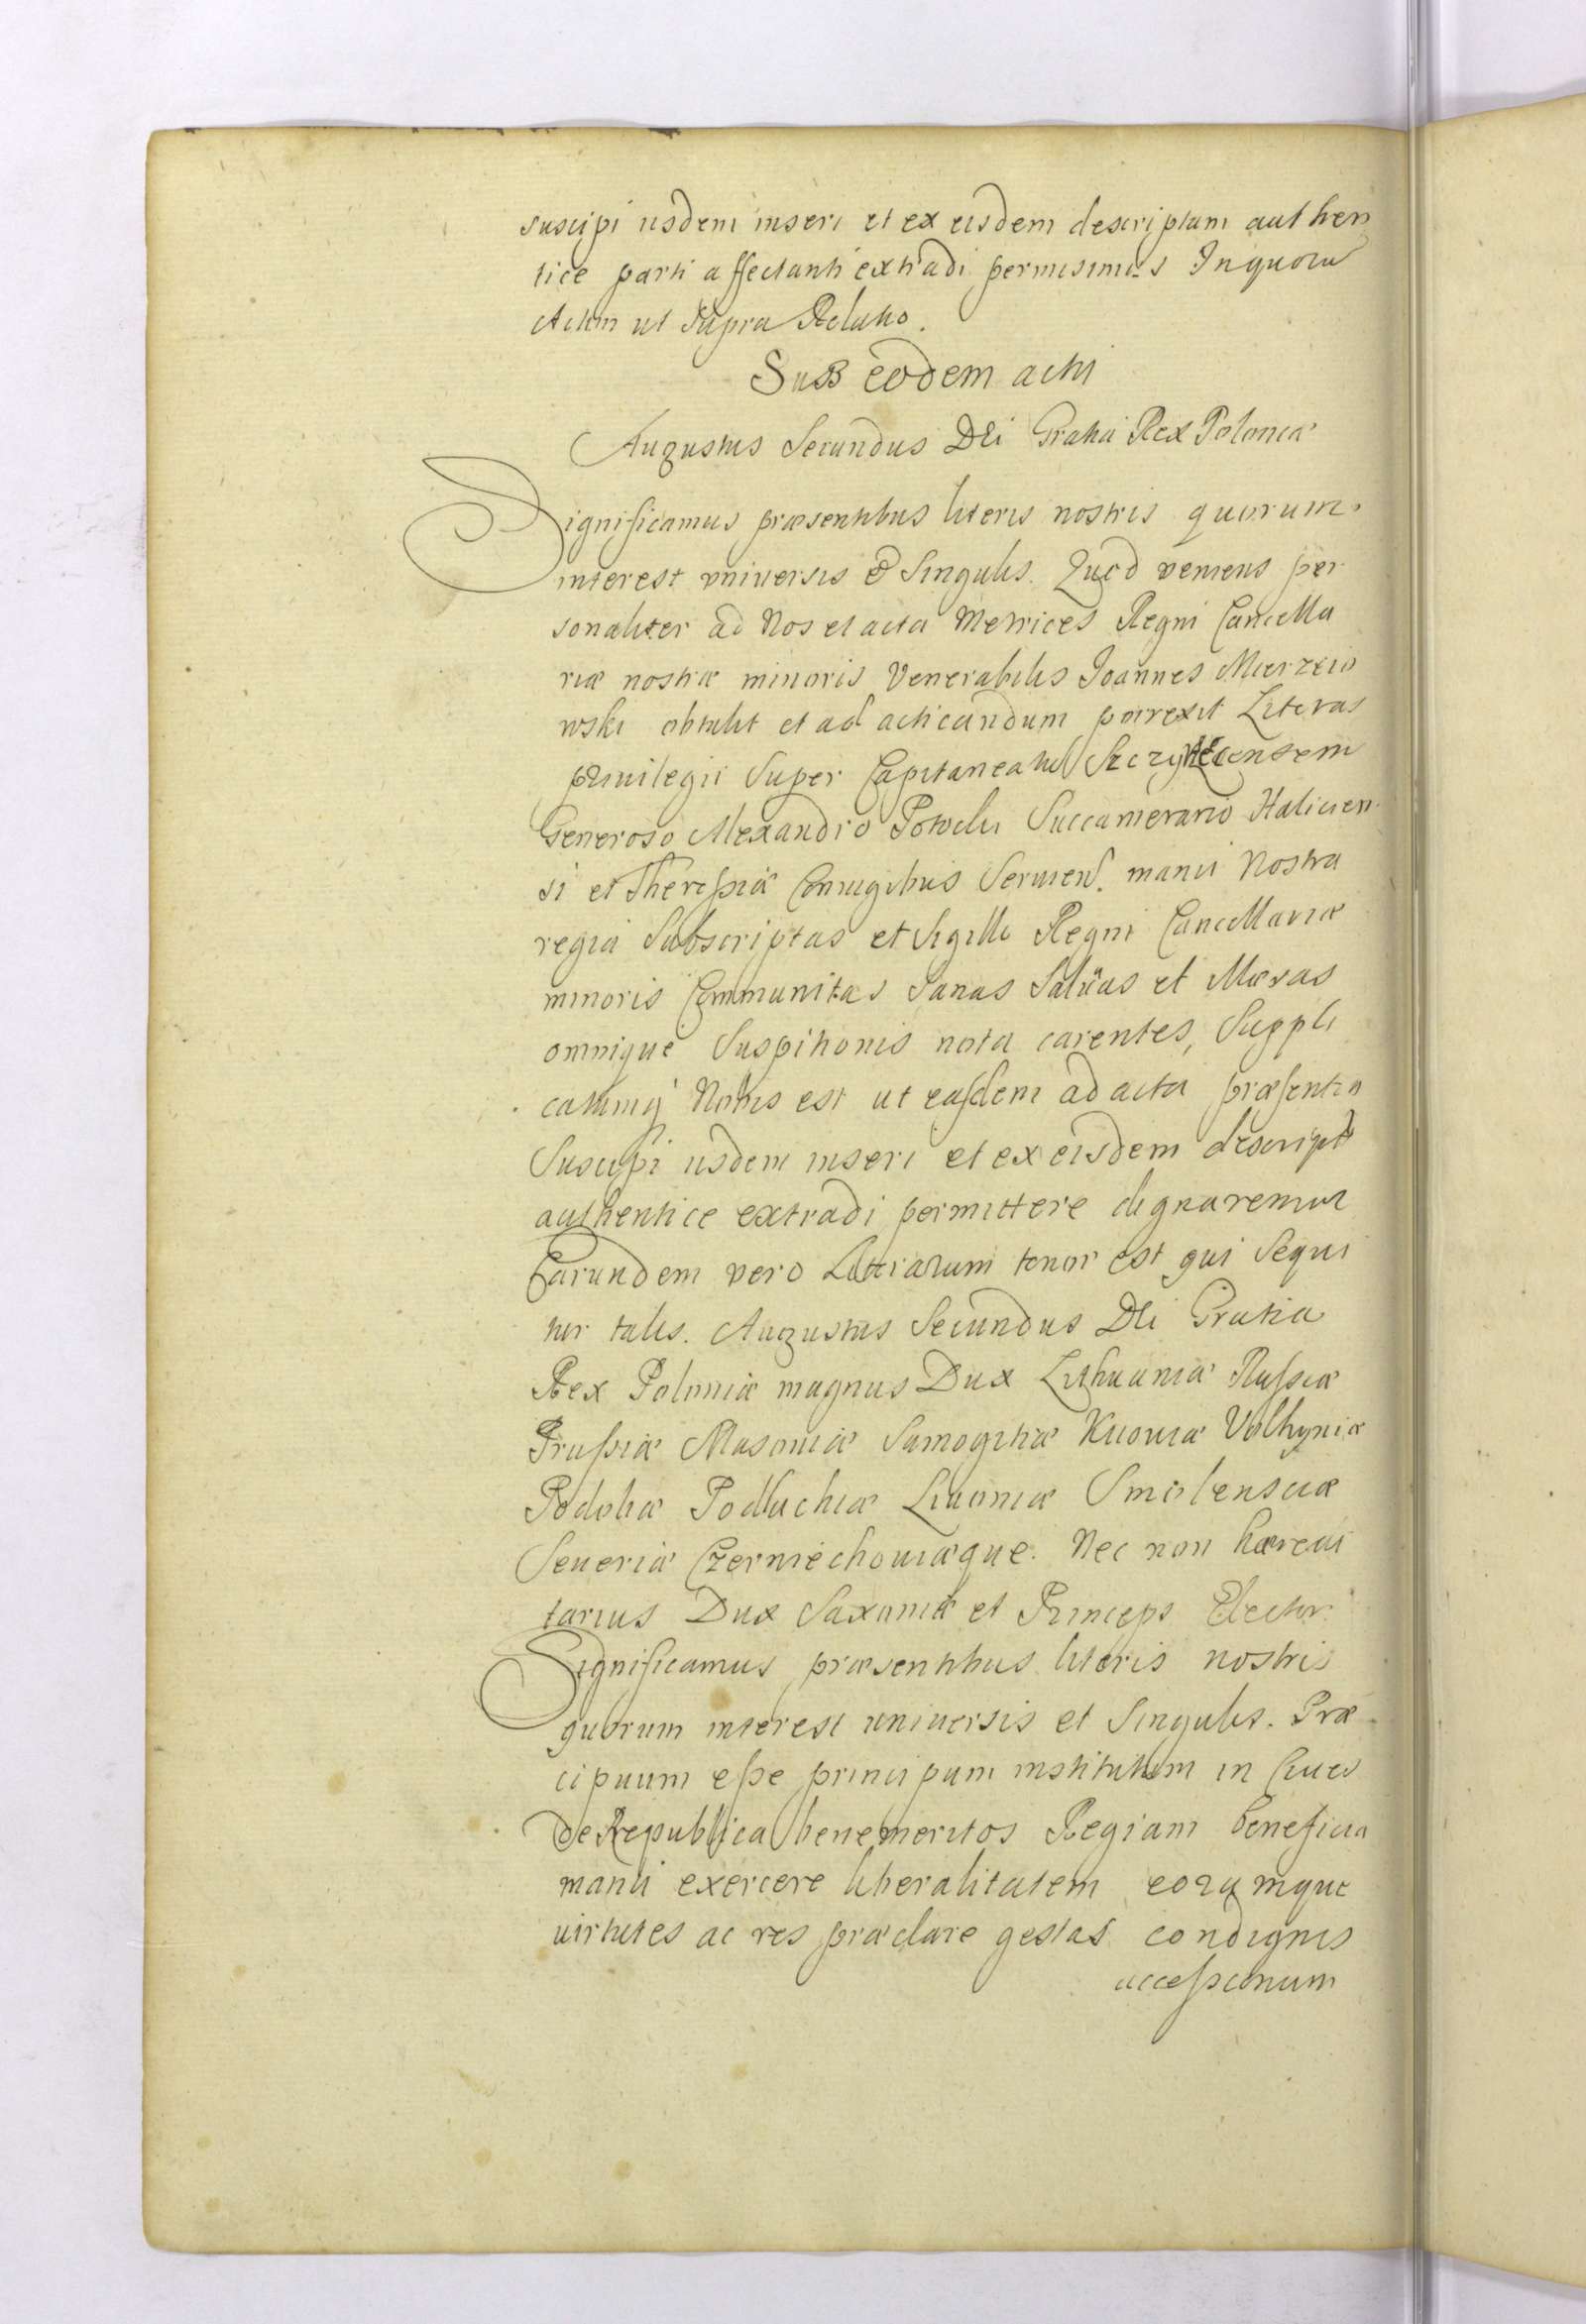 suscipi iisdem inseri et ex eisdem descriptum authen
tice parti affectanti extradi permisimus Inquoru
Actum ut Supra Relatio.
SuB eodem acti
Augustus Secundus DEi Gratia Rex Poloniæ
Significamus præsentibus literis nostris quorum
interest vniversis & Singulis. Quod veniens per
sonaliter ad Nos et acta Metrices Regni Cancella
riæ nostræ minoris Venerabilis Joannes Mierzeio
wski obtulit et ad acticandum porrexit Literas
privilegii Super Capitaneatu Szczyrecensem
Generoso Alexandro Potocki Succamerario Halicien
si et Theressiæ Coniugibus Servien. manu Nostra
regia Subscriptas et Sigillo Regni Cancellariæ
minoris Communitas Sanas Salüas et illæsas
omnique Suspitionis nota carentes, Suppli
catumq Nobis est ut easdem ad acta præsentia
Suscipi iisdem inseri et ex eisdem descript
authentice extradi permittere dignaremur
Earundem vero Litterarum tenor est qui Sequi
tur talis. Augustus Secundus DEi Gratia
Rex Poloniæ magnus Dux Lithuaniæ Russiæ
Prussiæ Masoviæ Samogitiæ Kiioviæ Volhyniæ
Podoliæ Podlachiæ Livoniæ Smolensciæ
Severiæ Czerniechoviæque. Nec non hæredi
tarius Dux Saxoniæ et Princeps Elector.
Significamus præsentibus literis nostris
quorum interest universis et Singulis. Præ
cipuum esse principum institutum in Cives
de Republica benemeritos Regiam benefica
manu exercere liberalitatem eorumque
virtutes ac res præclare gestas condignis
accessionum